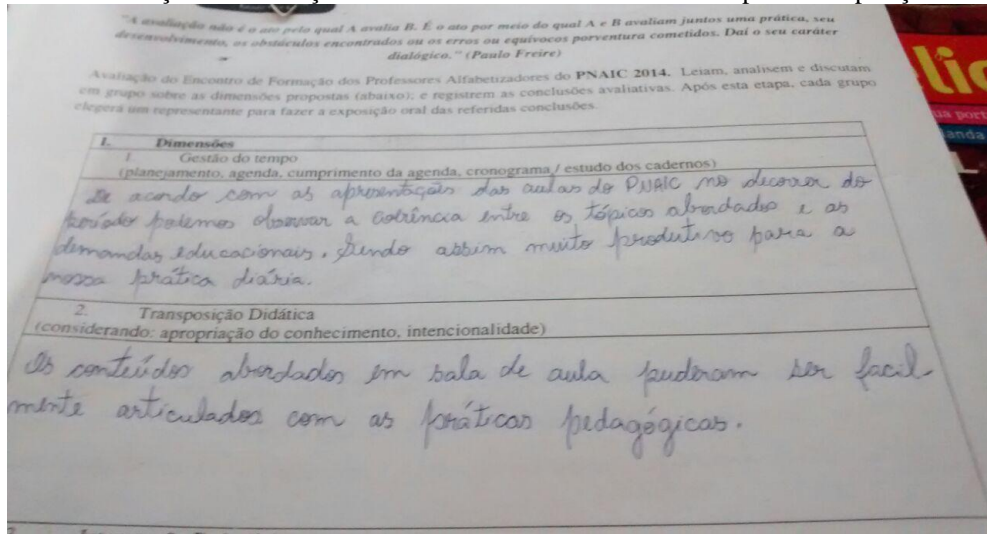 "A avaliação não é o ato pelo qual A avalia B. É o ato por meio do qual A e B avaliam juntos uma prática, seu
desenvolvimento, os obstáculos encontrados ou os erros ou equívocos porventura cometidos. Daí o seu caráter
dialógico." (Paulo Freire)
Avaliação do Encontro de Formação dos Professores Alfabetizadores do PNAIC 2014. Leiam, analisem e discutam
em grupo sobre as dimensões propostas (abaixo); e registrem as conclusões avaliativas. Após esta etapa, cada grupo
elegerá um representante para fazer a exposição oral das referidas conclusões.
I. Dimensões
1. Gestão do tempo
(planejamento, agenda, cumprimento da agenda, cronograma / estudo dos cadernos)
De acordo com as apresentações das aulas do PNAIC no decorrer do
período podemos observar a coerência entre os tópicos abordados e as
demandas educacionais. Sendo assim muito produtivo para a
nossa prática diária.
2. Transposição Didática
(considerando: apropriação do conhecimento, intencionalidade)
Os conteúdos abordados em sala de aula puderam ser facil-
mente articulados com as práticas pedagógicas.